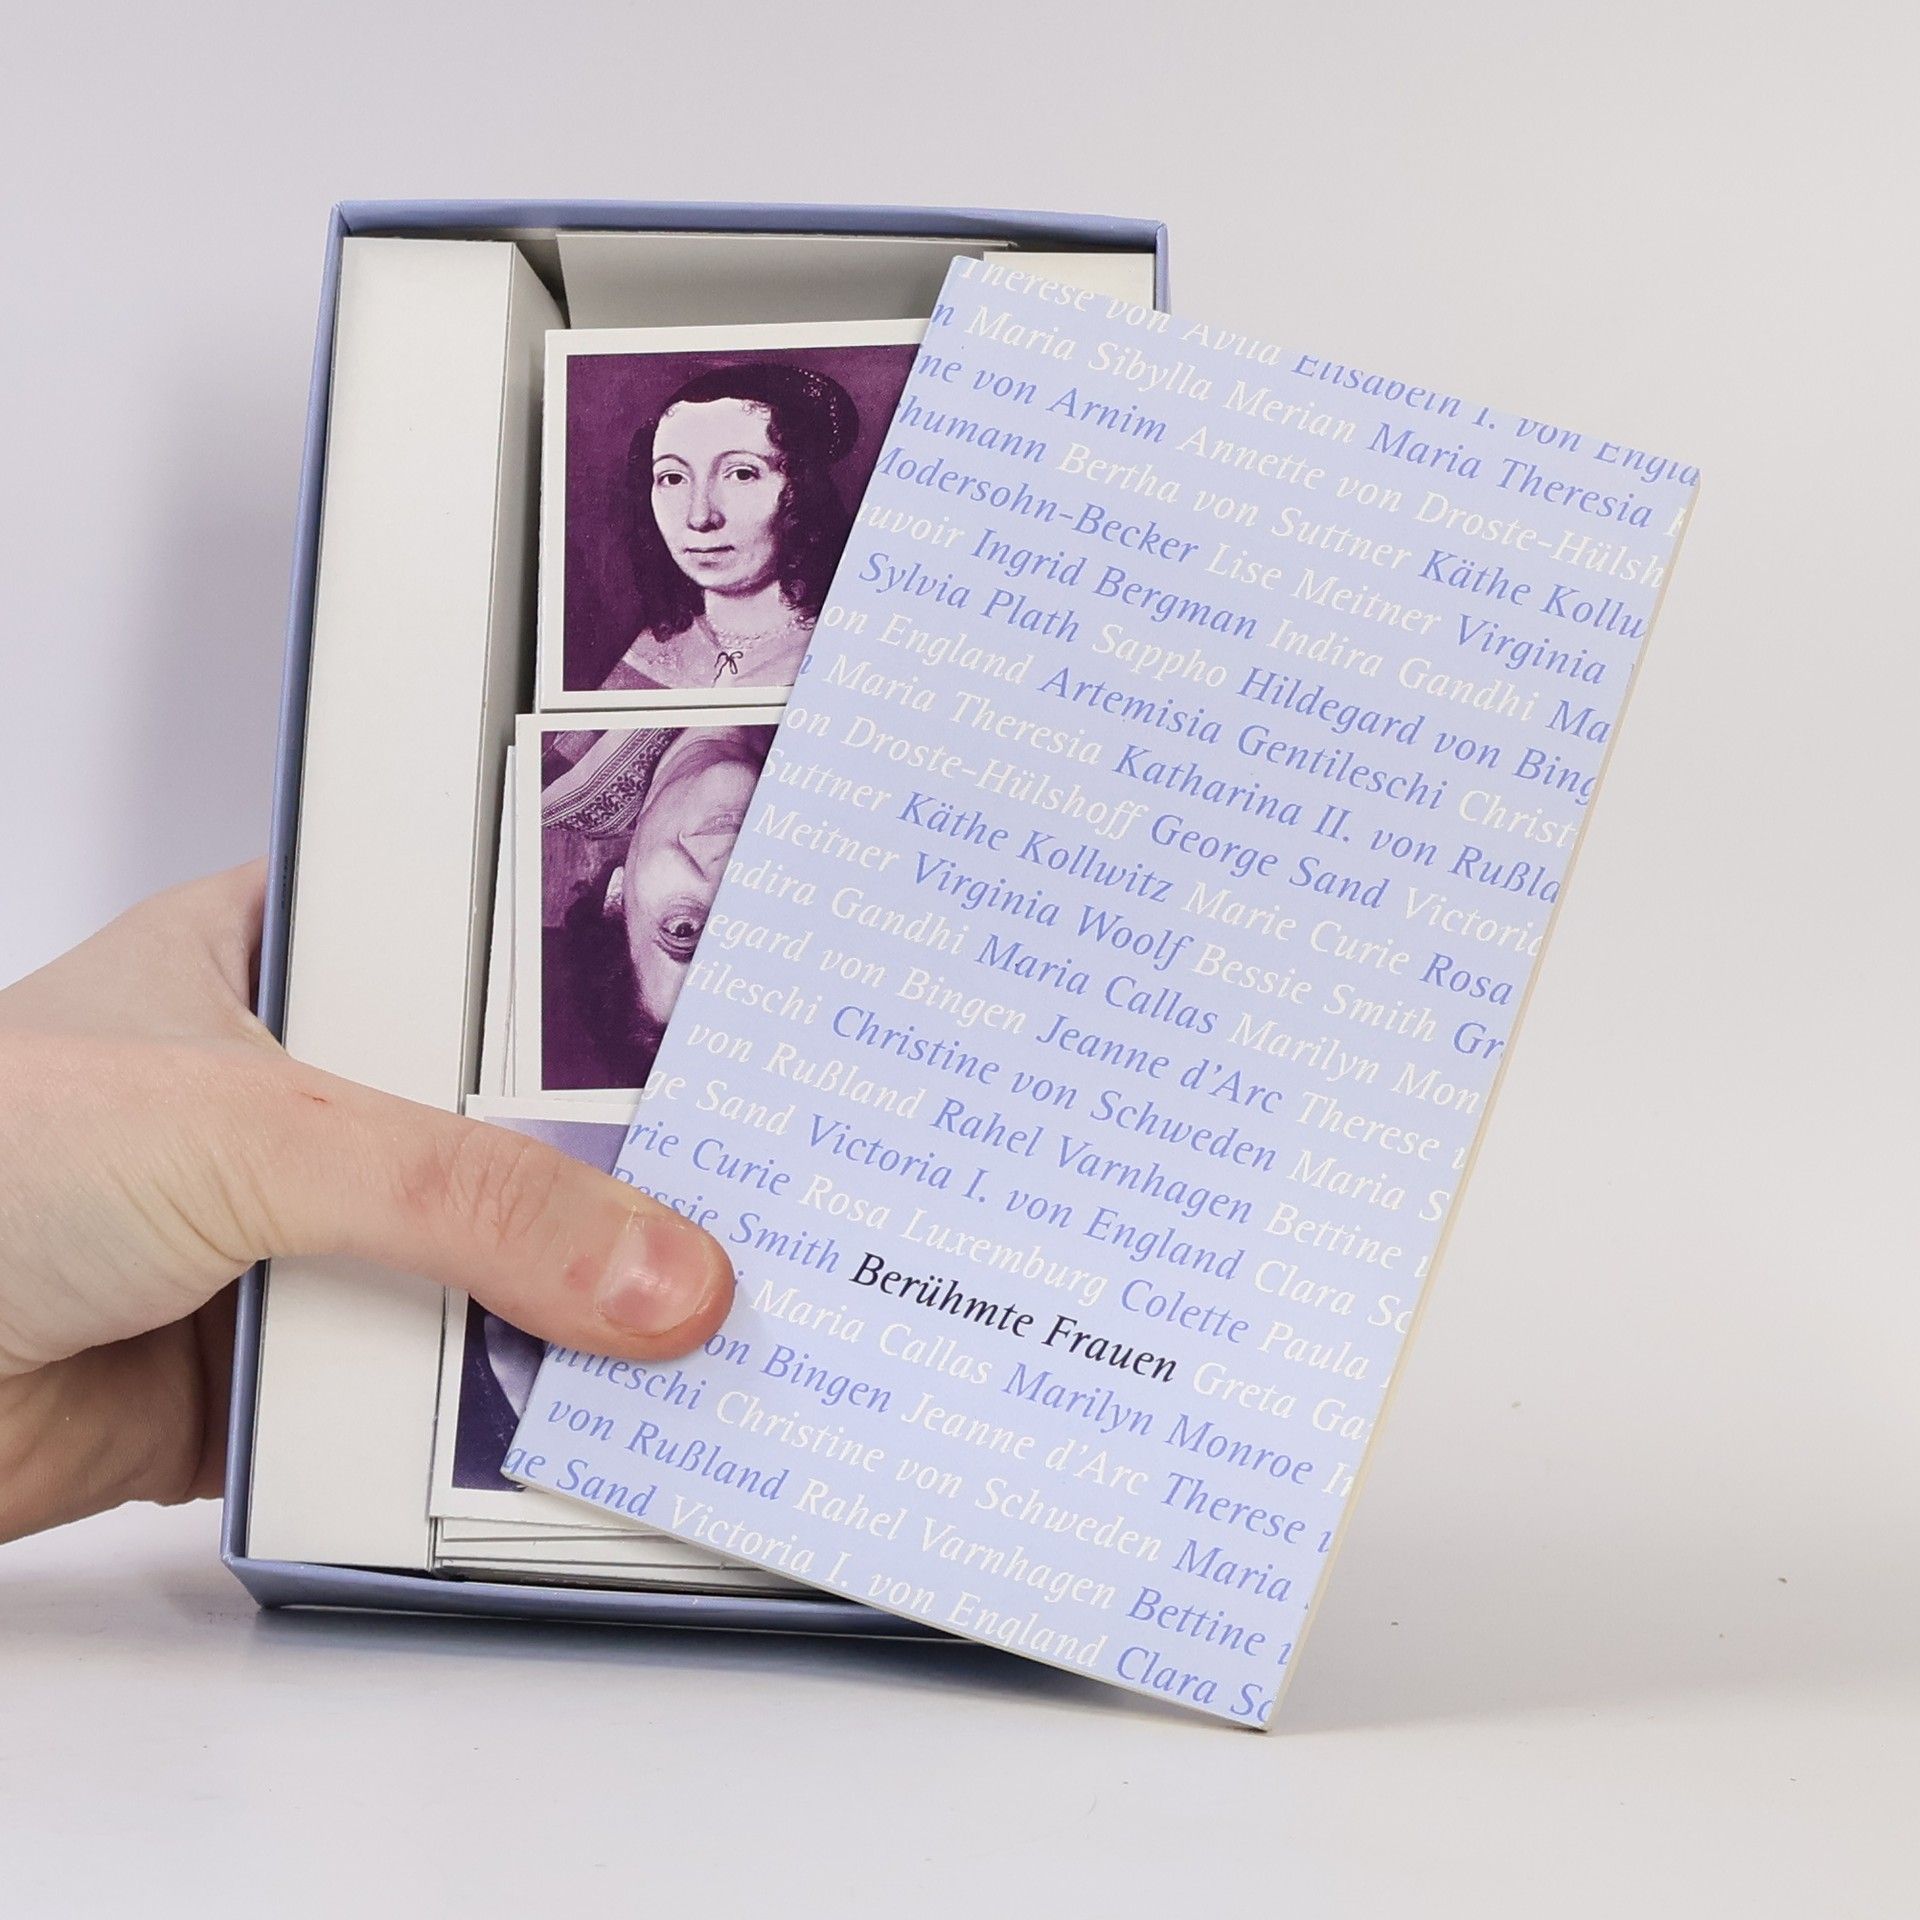 Therese von Avila Elisabeth I. von Engla
n Maria Sibylla Merian Maria Theresia
ne von Arnim Annette von Droste-Hülsh
chumann Bertha von Suttner Käthe Kollw
Modersohn-Becker Lise Meitner Virginia
uvoir Ingrid Bergman Indira Gandhi Ma
Sylvia Plath Sappho Hildegard von Bing
on England Artemisia Gentileschi Christ
n Maria Theresia Katharina II. von Rußla
on Droste-Hülshoff George Sand Victoria
Suttner Käthe Kollwitz Marie Curie Rosa
Meitner Virginia Woolf Bessie Smith Gr
ndira Gandhi Maria Callas Marilyn Mon
egard von Bingen Jeanne d'Arc Therese
tileschi Christine von Schweden Maria S
von Rußland Rahel Varnhagen Bettine
ge Sand Victoria I. von England Clara Sc
rie Curie Rosa Luxemburg Colette Paula
Bessie Smith Berühmte Frauen Greta Ga
i Maria Callas Marilyn Monroe In
on Bingen Jeanne d'Arc Therese
ntileschi Christine von Schweden Maria
von Rußland Rahel Varnhagen Bettine
ge Sand Victoria I. von England Clara Sc